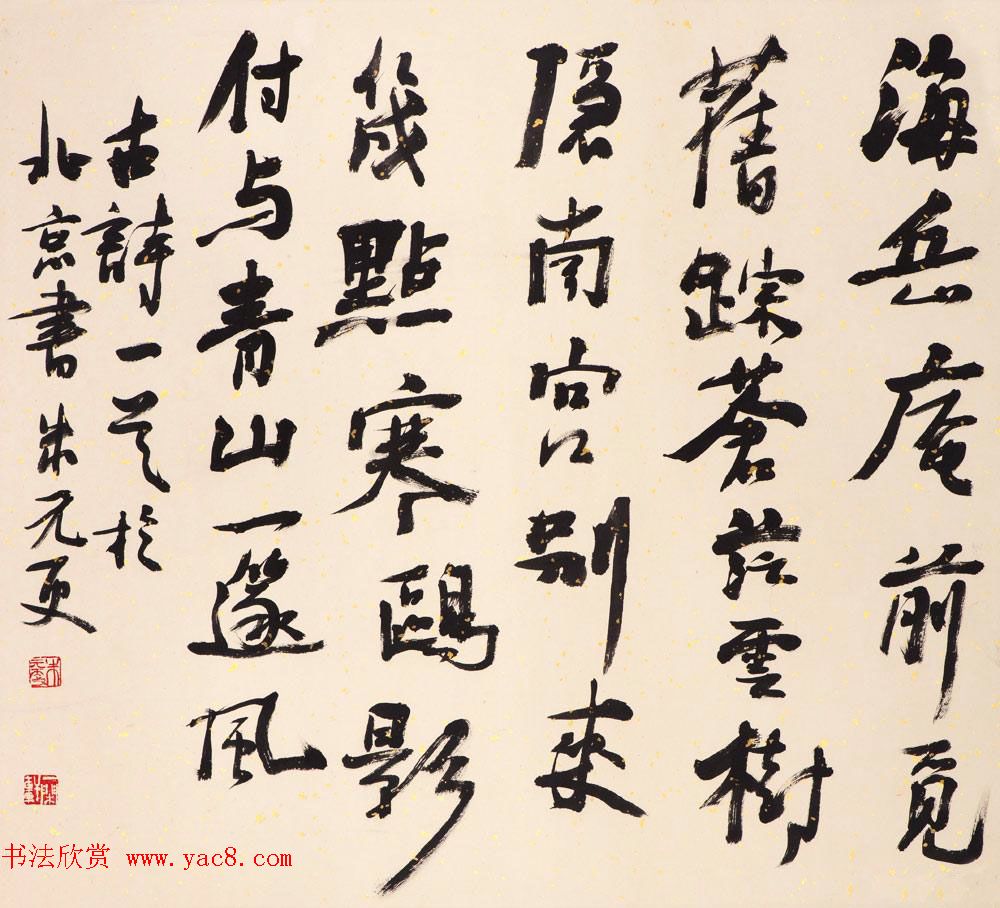 海岳庵前覓
舊踪蒼茫雲樹
隱南宮别来
幾點寒鷗影
付与青山一篴風
古詩一首於
北京書 朱元更
书法欣赏 www.yac8.com